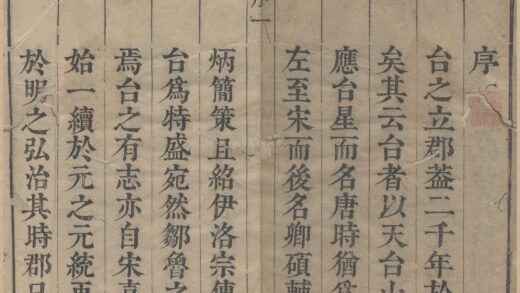 序一
序
台之立郡葢二千年於
矣其云台者以天台山
應台星而名唐時猶爲
左至宋而後名卿碩輔
炳簡策且紹伊洛宗傳
台爲特盛宛然鄒魯之
焉台之有志亦自宋嘉
始一續於元之元統再
於明之弘治其時郡只